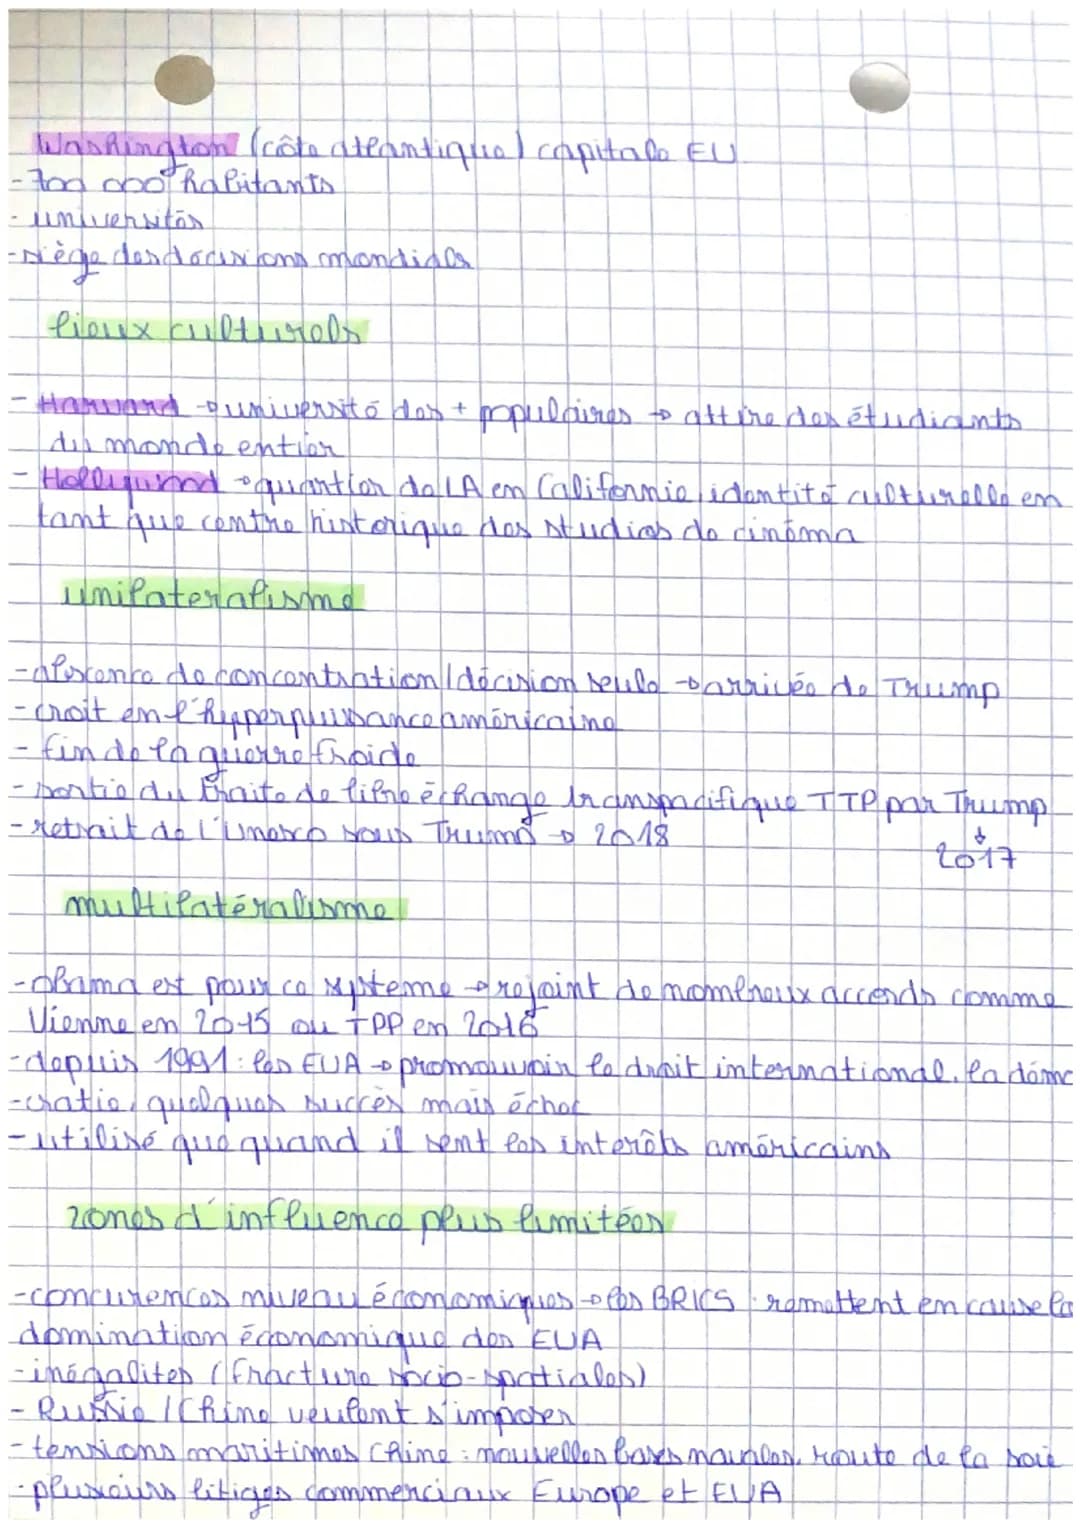 Washington (côte atlantique) capitale EU
- 700 000 habitants
- universités
- siège des décisions mondiales
lieux culturels
- Harvard → université des + populaires → attire des étudiants
du monde entier
- Hollywood → quartier de LA en Californie, identité culturelle en
tant que centre historique des studios de cinéma
unilateralisme
- abscence de concentration / décision seule → arrivée de Trump
- croit en l'hyperpuissance américaine
- fin de la guerre froide
- sortie du traite de libre échange transpacifique TTP par Trump
- retrait de l'Unesco sous Trump → 2018
↓
2017
multilatéralisme
- Obama est pour ce systeme → rejoint de nombreux accords comme
Vienne en 2015 ou TPP en 2016
- depuis 1991 : les EUA → promouvoir le droit international, la démo
-cratie, quelques succès mais échec
- utilisé que quand il sent les interêts américains
zones d'influence plus limitées
- concurences niveau économiques → les BRICS : remettent en cause la
domination économique des EUA
- inégalites (fracture socio-spatiales)
- Russie / Chine veulent s'imposer
- tensions maritimes Chine : nouvelles bases navales, route de la soie
- plusieurs litiges commerciaux Europe et EUA